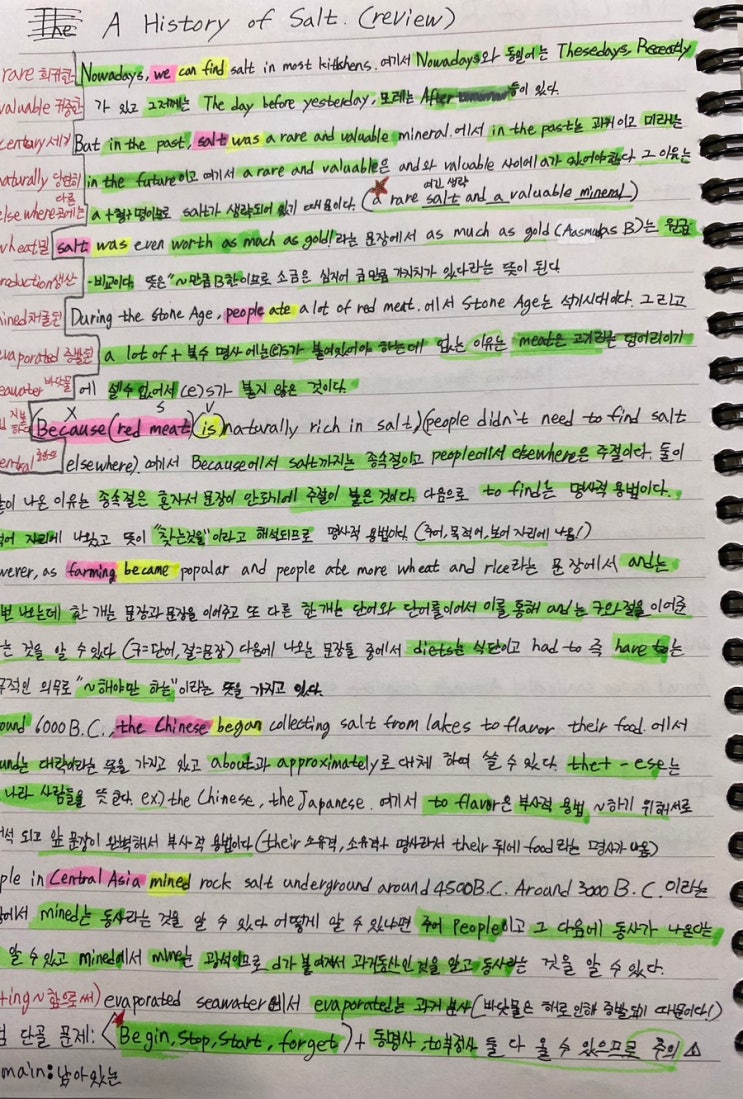 The A History of Salt. (review)
rare 희귀한 Nowadays, we can find salt in most kitchens. 여기서 Nowadays와 동의어는 Thesedays, Recently
valuable 귀중한 가 있고 그저께는 The day before yesterday, 모레는 After 등이 있다.
century 세기 But in the past, salt was a rare and valuable mineral. 에서 in the past는 과거이고 미래는
naturally 당연히 in the future이고 여기서 a rare and valuable은 and와 valuable 사이에 a가 있어야한다. 그 이유는
elsewhere 다른곳에는 a + 형 + 명이므로 salt가 생략되어 있기 때문이다. (a rare salt and a valuable mineral) 여긴 생략
wheat 밀 salt was even worth as mach as gold! 라는 문장에서 as much as gold (Aasmuchas B)는 원급
production 생산 -비교이다. 뜻은 "~만큼 B한이므로 소금은 심지어 금만큼 가치가 있다라는 뜻이 된다
mined 채굴된 During the stone Age, people ate a lot of red meat. 에서 Stone Age는 석기시대이다. 그리고
evaporated 증발된 a lot of + 복수 명사에는 (e)s가 붙어있어야 하는데 없는 이유는 meat은 고기라는 덩어리이기
seawater 바닷물 에 셀수 없어서 (e)s가 붙지 않은 것이다.
X S V
Because (red meat) (is) naturally rich in salt,) (people didn't need to find salt
central 중앙의 elsewhere). 에서 Because에서 salt까지는 종속절이고 people에서 elsewhere은 주절이다. 둘이
같이 나온 이유는 종속절은 혼자서 문장이 안되기에 주절이 붙은 것이다. 다음으로 to find는 명사적 용법이다.
목적어 자리에 나왔고 뜻이 "찾는것을"이라고 해석되므로 명사적 용법이다. (주어, 목적어, 보어 자리에 나옴!)
However, as farming became popular and people ate more wheat and rice라는 문장에서 and는
번 나오는데 한 개는 문장과 문장을 이어주고 또 다른 한개는 단어와 단어를 이어서 이를 통해 and는 구와 절을 이어준
는 것을 알 수 있다 (구=단어, 절=문장) 다음에 나오는 문장들 중에서 diets는 식단이고 had to 즉 have to는
적인 의무로 "~해야만 하는"이라는 뜻을 가지고 있다.
around 6000 B.C., the Chinese began collecting salt from lakes to flavor their food. 에서
around는 대략이라는 뜻을 가지고 있고 about과 approximately로 대체 하여 쓸 수 있다. the + - ese는
나라 사람들을 뜻 한다. ex) the Chinese, the Japanese. 여기서 to flavor은 부사적 용법 ~하기 위해서로
해석 되고 앞 문장이 완벽해서 부사적 용법이다 (their 소유격, 소유격 + 명사라서 their 뒤에 food 라는 명사가 나옴)
people in Central Asia mined rock salt underground around 4500B.C. Around 3000 B.C. 이라는
문장에서 mined는 동사라는 것을 알 수 있다 어떻게 알 수 있냐면 주어 People이고 그 다음에 동사가 나온다는
알 수 있고 mined에서 mine는 광석이므로 d가 붙여져서 과거동사인 것을 알고 동사라는 것을 알 수 있다.
ting ~함으로써) evaporated seawater에서 evaporated는 과거 분사 (바닷물은 해로 인해 증발되기 때문이다!)
험 단골 문제: (Begin, Stop, Start, forget) + 동명사, to부정사 둘 다 올 수 있으므로 주의
main: 남아있는